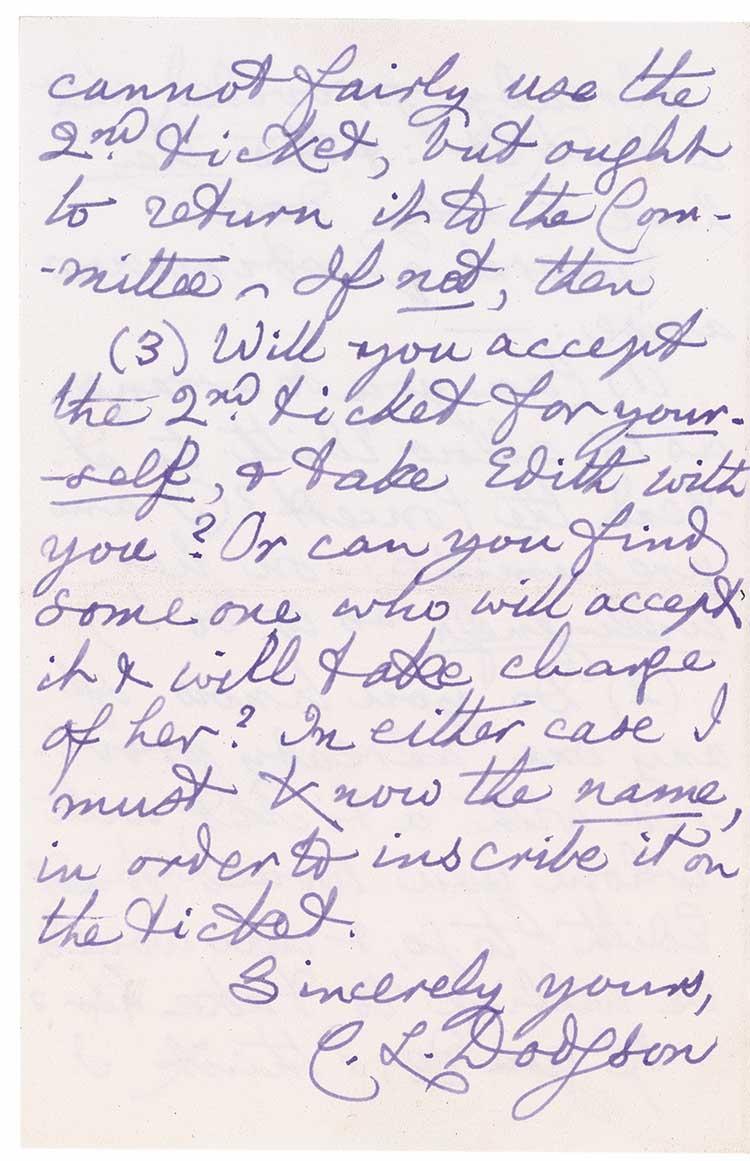 cannot fairly use the
2nd ticket, but ought
to return it to the Com-
-mittee. If not, then
(3) Will you accept
the 2nd ticket for your-
-self, & take Edith with
you? Or can you find
some one who will accept
it & will take charge
of her? In either case I
must know the name,
in order to inscribe it on
the ticket.
Sincerely yours,
C. L. Dodgson